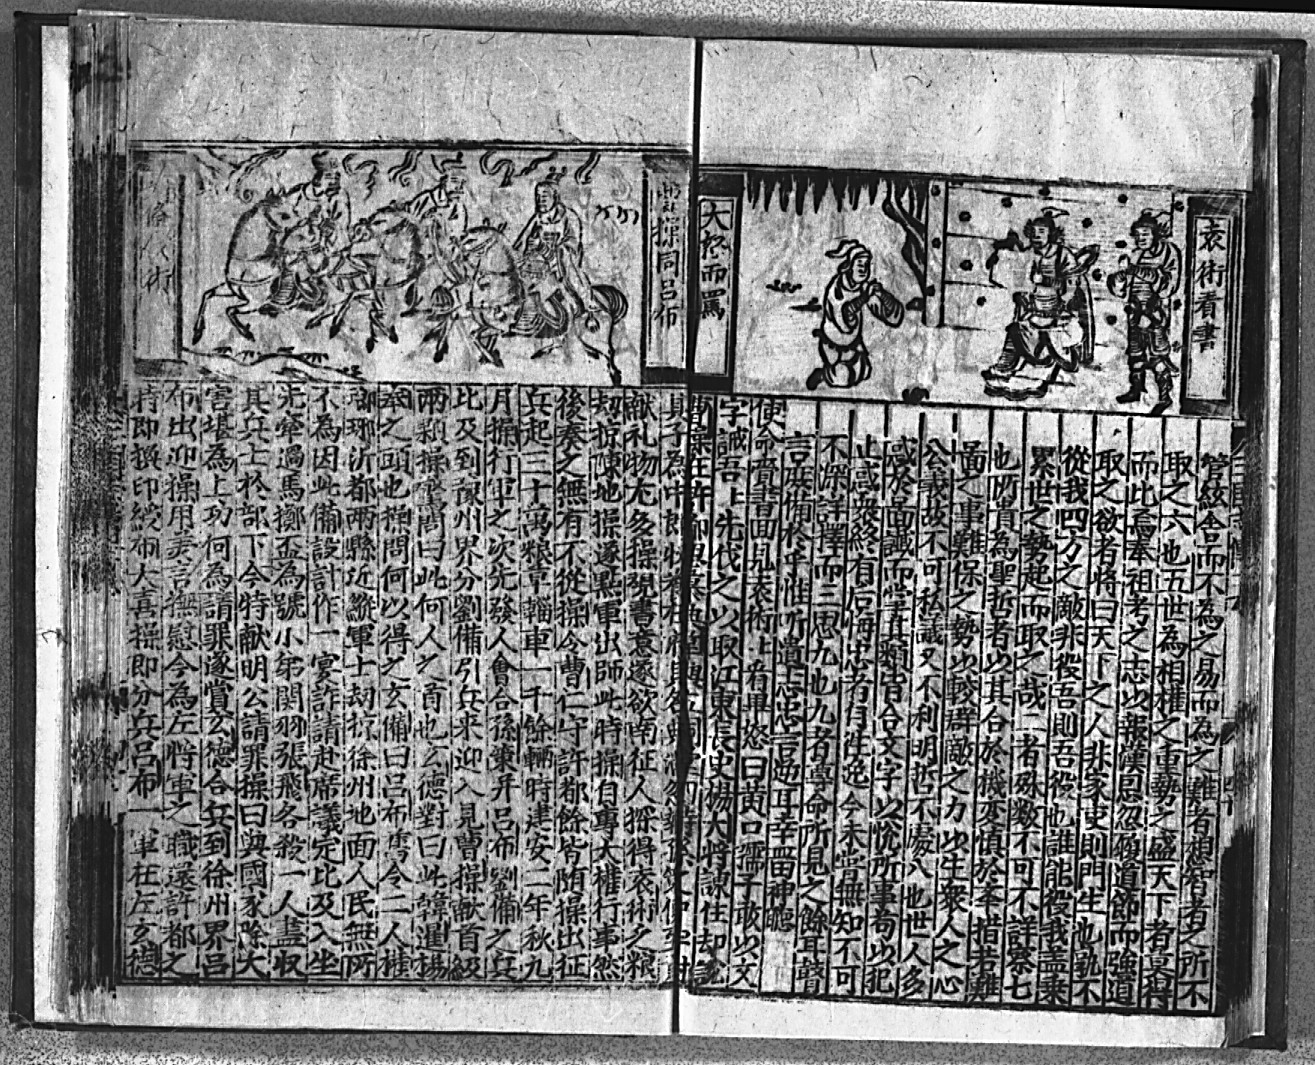 袁術看書
大怒而罵
管絃舍而不為之易而為之難者想智者之所不
取之六也五世為相權之重勢之盛天下者莫得
而此焉奉祖考之志以報漢恩忽履道節而強道
取之欲者將曰天下之人非家吏則門生也孰不
從我四方之敵非役吾則吾役也誰能役我盖乗
累世之勢起而取之哉二者殊数不可不詳察七
也所貴為聖哲者以其合於機变慎於峯措若難
啚之事難保之勢以較群敵之力以生衆人之心
公義故不可私議又不利明哲不處八也世人多
惑於啚讖而類皆合文字以悅所事苟以犯
止惑衆終有后悔忠者今未嘗無知不可
不深詳擇而三思九也九者尊命所見之餘耳聲
言庶備於乎惟所遺忘忠言逆耳幸留神聽
使命賫書面見袁術上看畢怒曰黄口孺子敢以文
字誡吾上先代之以取江東長史揚大將諫住却說
曹操
曹操同呂布
献礼物尤多操視書意遂欲南征人探得袁術乏粮
劫掠陳地操遂點軍出師此時操自專大權行事然
後奏之無有不從操令曹仁守許都餘皆随操出征
兵起三十萬粮草輜車一千餘輛時建安二年秋九
月操行軍之次先發人會合孫策并呂布劉備之兵
比及到豫州界分劉備引兵来迎入見曹操献首級
兩顆操驚問曰此何人之首也玄德對曰此韓暹楊
奉之頭也操問何以得之玄備曰呂布舊令二人權
瑯琊沂都兩縣近縱軍士刼掠徐州地面人民無所
不為因此備設計作一宴詐請赴席議定比及入坐
先牽過馬擲盃為號小弟関羽張飛各殺一人盡収
其兵士於部下今特献明公請罪操曰與國家除大
害堪為上功何為請罪遂賞玄德合兵到徐州界呂
布出迎操用美言撫慰今為左將軍之職還許都之
時即撰印綬布大喜操即分兵呂布一軍在左玄德